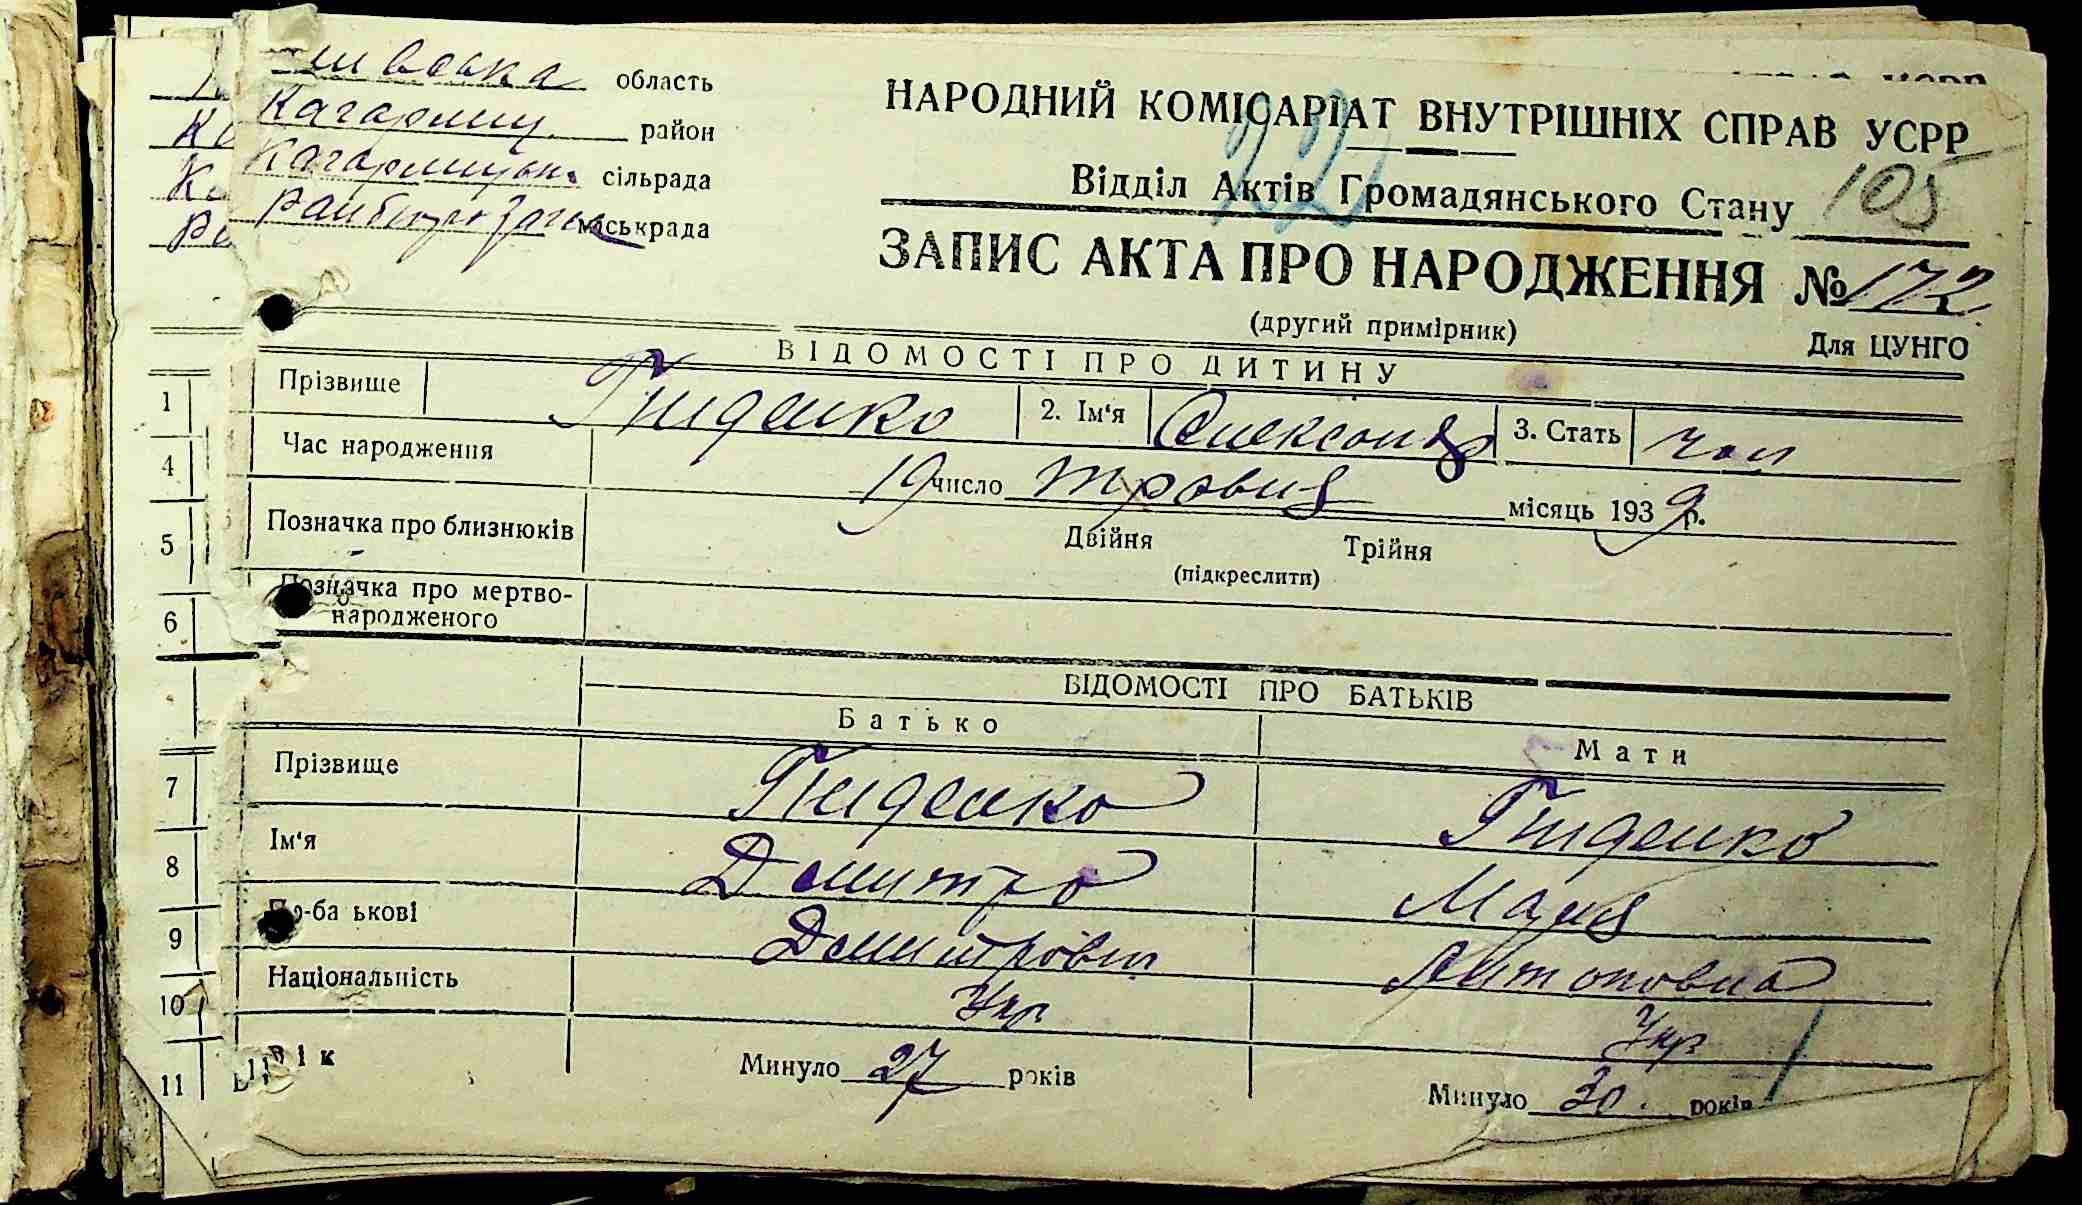 область
Кагарлиц. район
Кагарлицька сільрада
Райбюро Загс міськрада
НАРОДНИЙ КОМІСАРІАТ ВНУТРІШНІХ СПРАВ УСРР
Відділ Актів Громадянського Стану 105
ЗАПИС АКТА ПРО НАРОДЖЕННЯ № 172
(другий примірник) Для ЦУНГО
ВІДОМОСТІ ПРО ДИТИНУ
1 Прізвище Гиденко 2. Ім'я Олександр 3. Стать чол
4 Час народження 19 число травня місяць 1939 р.
5 Позначка про близнюків Двійня Трійня
(підкреслити)
6 Позначка про мертво-
народженого
ВІДОМОСТІ ПРО БАТЬКІВ
Батько Мати
7 Прізвище Гиденко Гиденко
8 Ім'я Дмитро Марія
9 По-ба ькові Дмитрович Антоновна
10 Національність Укр Укр
11 Вік Минуло 27 років Минуло 30. років